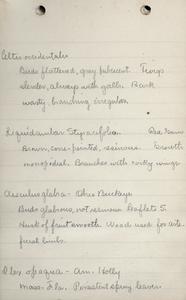 Celtis occidentalis
Buds flattened, gray pubescent. Twigs
slender, always with galls. Bark
warty, branching irregular.
Liquidambar Styraciflua. Red Gum
Brown, cone-pointed, resinous. Growth
monopodial. Branches with corky wings
Aesculus glabra - Ohio Buckeye
Buds glabrous, not resinous. Leaflets 5.
Husk of fruit smooth. Wood used for arti-
ficial limbs.
Ilex opaqua - Am. Holly
Mass. - Fla. Persistent spiny leaves.